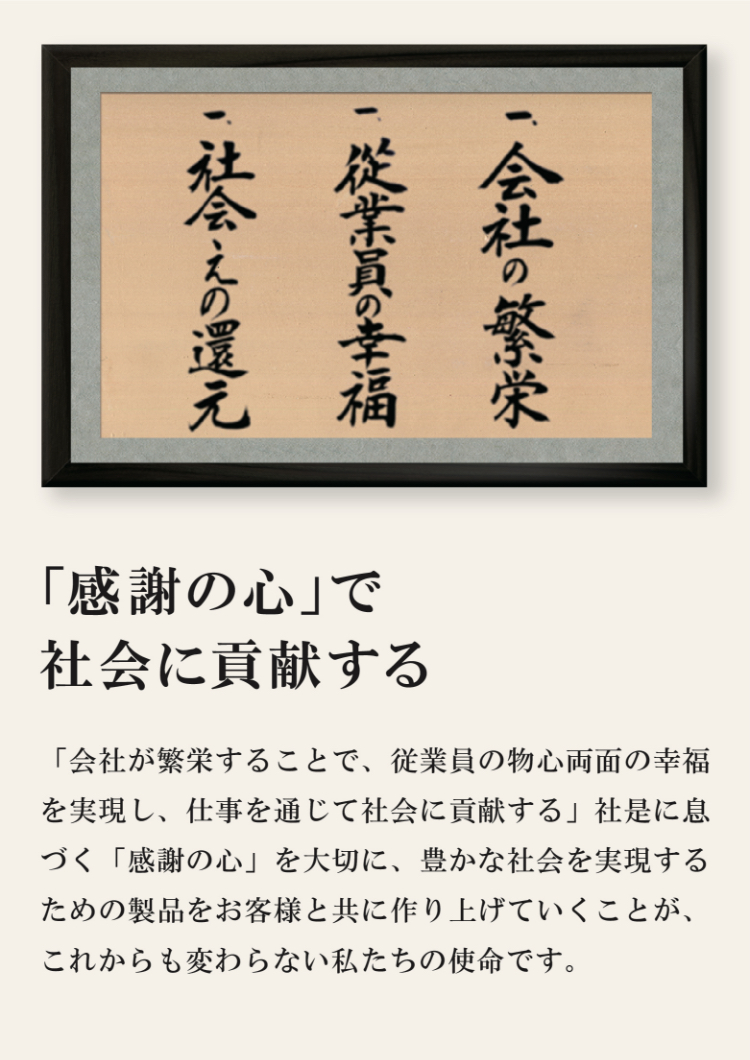 一、会社の繁栄
一、従業員の幸福
一、社会えの還元
「感謝の心」で
社会に貢献する
「会社が繁栄することで、従業員の物心両面の幸福
を実現し、仕事を通じて社会に貢献する」社是に息
づく「感謝の心」を大切に、豊かな社会を実現する
ための製品をお客様と共に作り上げていくことが、
これからも変わらない私たちの使命です。